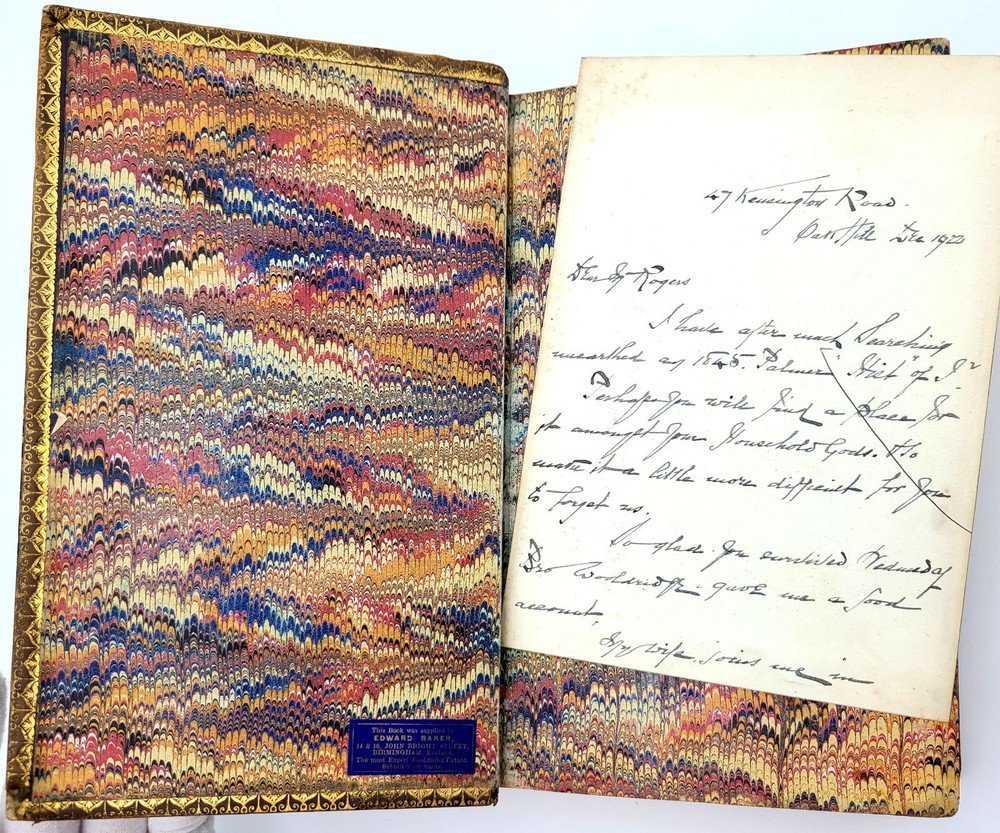 This Book was supplied by
EDWARD BAKER,
14 & 16, JOHN BRIGHT STREET,
BIRMINGHAM, England.
The most Expert Bookfinder Extant.
Submit your wants.
47 Kensington Road.
Oak Hill Dec 1922
Dear Mr Rogers
I have after much searching
unearthed an 1845. Palmer "Hist" of I?
Perhaps you will find a place for
it amongst your Household Gods. & to
make it a little more difficult for you
to forget us.
So glad you survived Wednesday
Bro gave me a good
account.
My wife joins me in